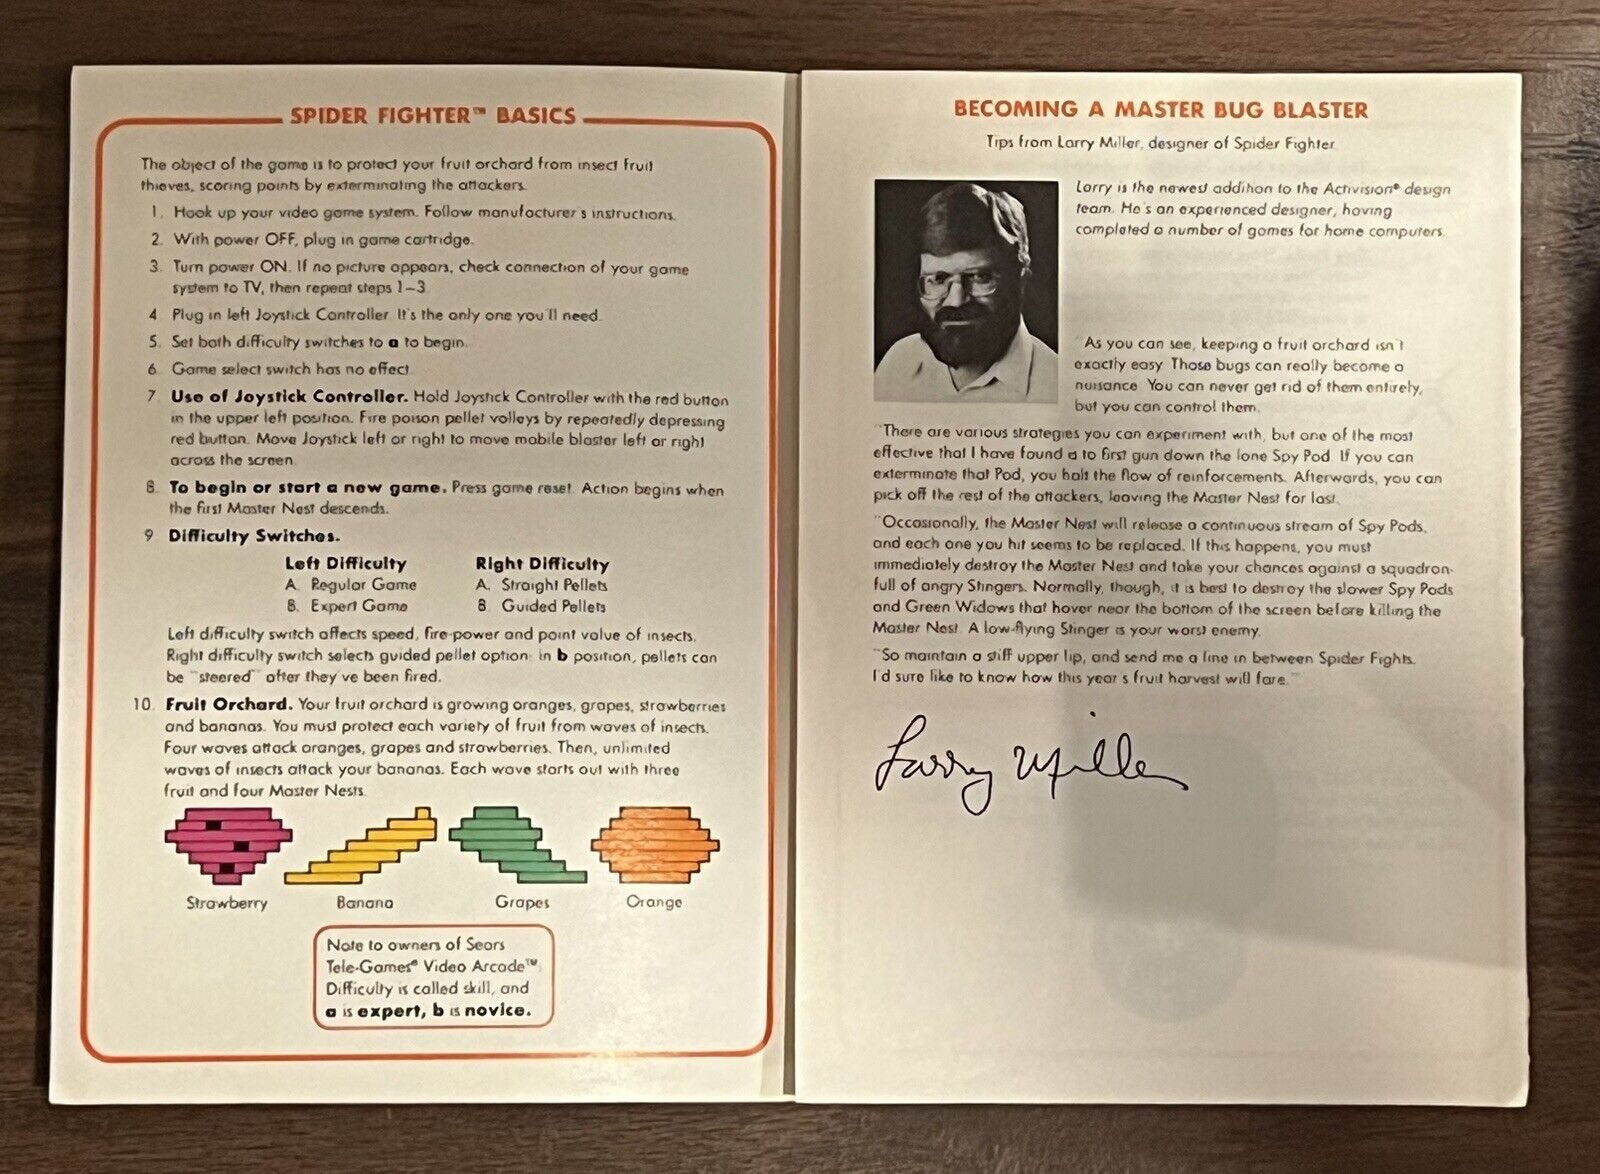 SPIDER FIGHTER™ BASICS
The object of the game is to protect your fruit orchard from insect fruit
thieves, scoring points by exterminating the attackers.
1. Hook up your video game system. Follow manufacturer's instructions.
2. With power OFF, plug in game cartridge.
3. Turn power ON. If no picture appears, check connection of your game
system to TV, then repeat steps 1–3.
4. Plug in left Joystick Controller. It's the only one you'll need.
5. Set both difficulty switches to a to begin.
6. Game select switch has no effect.
7. Use of Joystick Controller. Hold Joystick Controller with the red button
in the upper left position. Fire poison pellet volleys by repeatedly depressing
red button. Move Joystick left or right to move mobile blaster left or right
across the screen.
8. To begin or start a new game. Press game reset. Action begins when
the first Master Nest descends.
9. Difficulty Switches.
Left Difficulty Right Difficulty
A. Regular Game A. Straight Pellets
B. Expert Game B. Guided Pellets
Left difficulty switch affects speed, fire-power and point value of insects.
Right difficulty switch selects guided pellet option: in b position, pellets can
be "steered" after they've been fired.
10. Fruit Orchard. Your fruit orchard is growing oranges, grapes, strawberries
and bananas. You must protect each variety of fruit from waves of insects.
Four waves attack oranges, grapes and strawberries. Then, unlimited
waves of insects attack your bananas. Each wave starts out with three
fruit and four Master Nests.
Strawberry Banana Grapes Orange
Note to owners of Sears
Tele-Games® Video Arcade™:
Difficulty is called skill, and
a is expert, b is novice.
BECOMING A MASTER BUG BLASTER
Tips from Larry Miller, designer of Spider Fighter.
Larry is the newest addition to the Activision® design
team. He's an experienced designer, having
completed a number of games for home computers.
"As you can see, keeping a fruit orchard isn't
exactly easy. Those bugs can really become a
nuisance. You can never get rid of them entirely,
but you can control them.
"There are various strategies you can experiment with, but one of the most
effective that I have found is to first gun down the lone Spy Pod. If you can
exterminate that Pod, you halt the flow of reinforcements. Afterwards, you can
pick off the rest of the attackers, leaving the Master Nest for last.
"Occasionally, the Master Nest will release a continuous stream of Spy Pods,
and each one you hit seems to be replaced. If this happens, you must
immediately destroy the Master Nest and take your chances against a squadron-
full of angry Stingers. Normally, though, it is best to destroy the slower Spy Pods
and Green Widows that hover near the bottom of the screen before killing the
Master Nest. A low-flying Stinger is your worst enemy.
"So maintain a stiff upper lip, and send me a line in between Spider Fights.
I'd sure like to know how this year's fruit harvest will fare."
Larry Miller